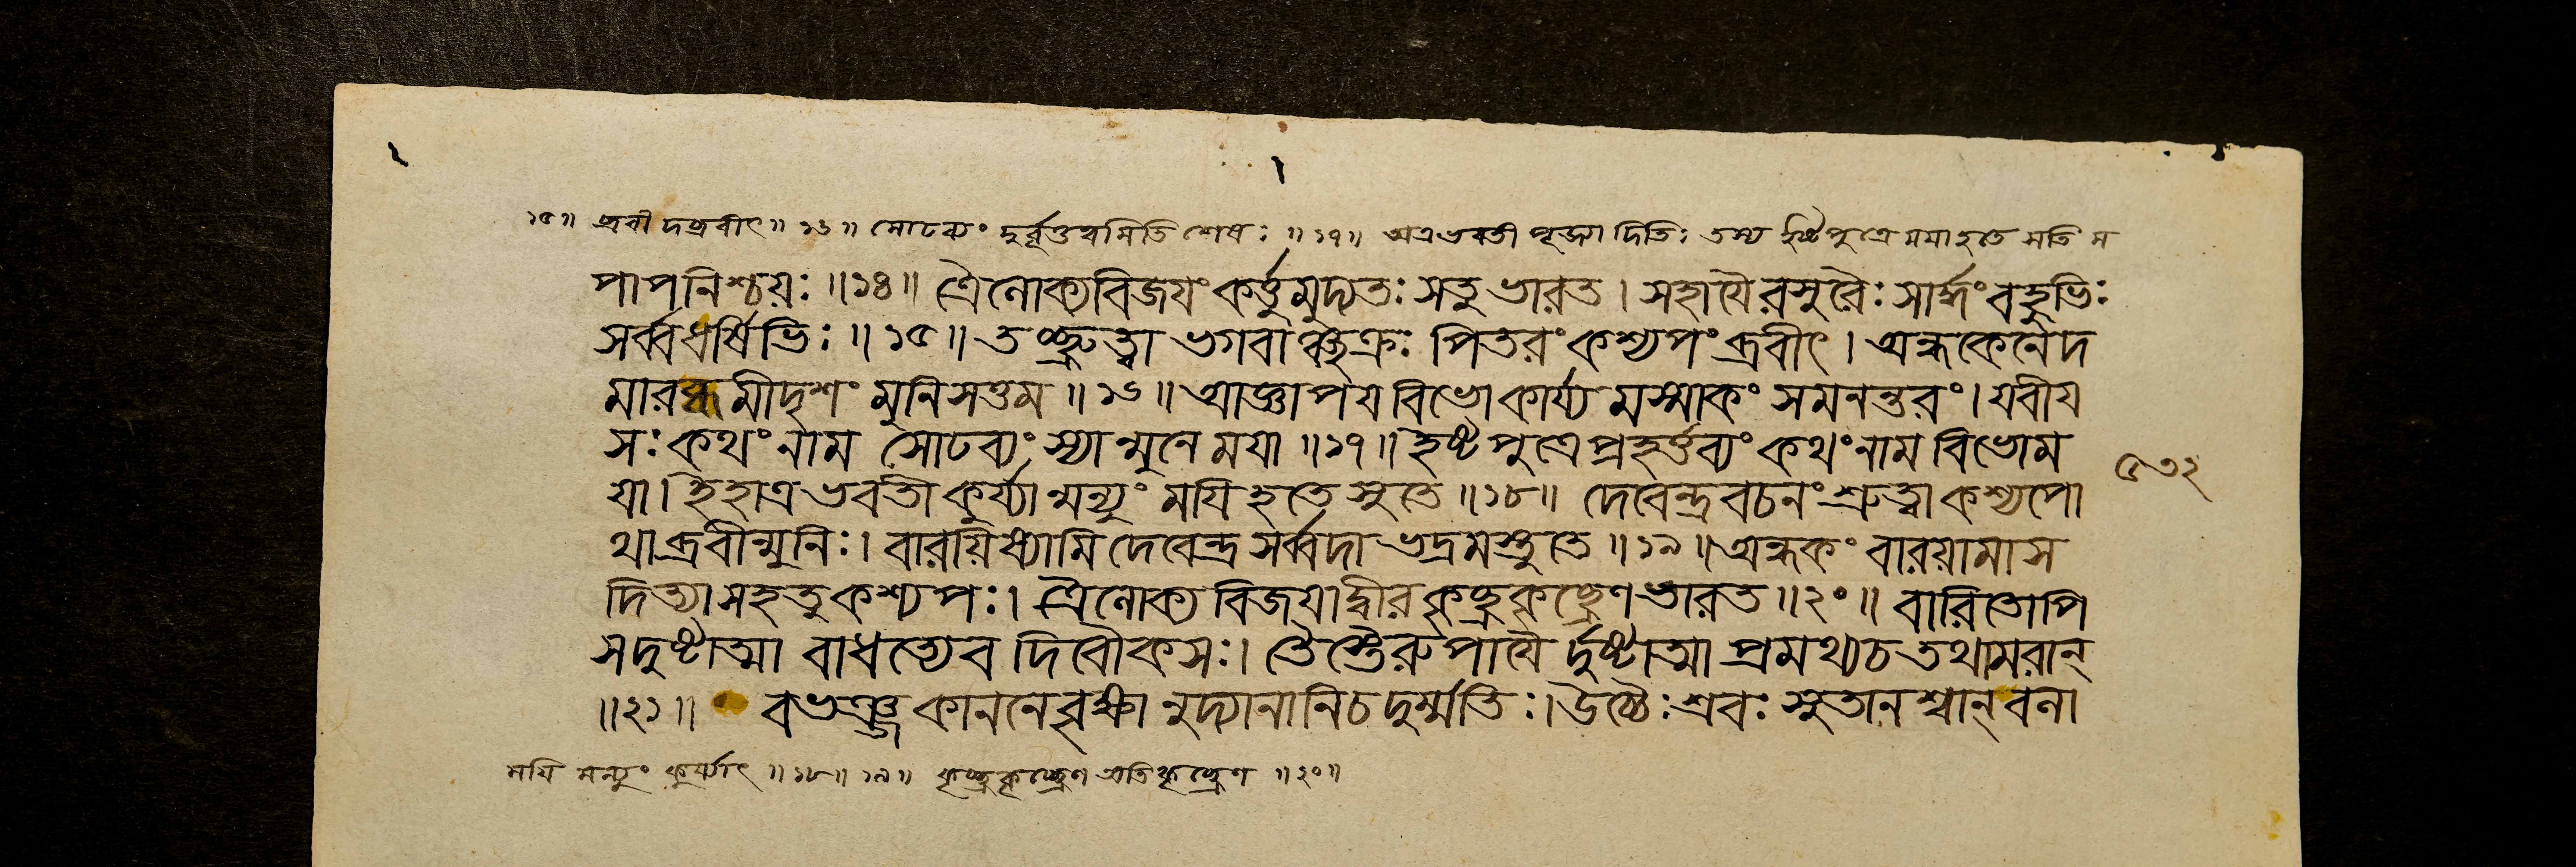 ১৫॥ ব্রবীদব্রবীৎ॥ ১৬॥ সোঢব্যং দুর্ব্বৃত্তত্বমিতি শেষঃ ॥ ১৭॥ অত্রভবতী পূজ্যা দিতিঃ তস্য ইষ্টপুত্রে ময়া হতে সতি ম
পাপনিশ্চয়ঃ ॥১৪॥ ত্রৈলোক্যবিজয়ং কর্ত্তুমুদ্যতঃ সতু ভারত । সহায়ৈরসুরৈঃ সার্দ্ধং বহুভিঃ
সর্ব্বধর্ষিভিঃ ॥১৫॥ তচ্ছ্রুত্বা ভগবাঞ্ছক্রঃ পিতরং কশ্যপং ব্রবীৎ । অন্ধকেনেদ
মারব্ধমীদৃশং মুনিসত্তম ॥১৬॥ আজ্ঞাপয বিভো কার্য্য মস্মাকং সমনন্তরং । যবীয
সঃ কথং নাম সোঢব্যং স্যান্মুনে ময়া ॥১৭॥ ইষ্টপুত্রে প্রহর্ত্তব্যং কথং নাম বিভো ম
যা । ইহাত্রভবতী কুর্য্যান্মন্যুং ময়ি হতে সুতে ॥১৮॥ দেবেন্দ্রবচনং শ্রুত্বা কশ্যপো
৫৩২
থাব্রবীন্মুনিঃ । বারয়িষ্যামি দেবেন্দ্র সর্ব্বদা ভদ্রমস্তুতে ॥১৯॥ অন্ধকং বারয়ামাস
দিত্যা সহ তু কশ্যপঃ । ত্রৈলোক্য বিজয়াদ্বীর কৃচ্ছ্রকৃচ্ছ্রেণ ভারত ॥২০॥ বারিতোপি
স দুষ্টাত্মা বাধত্যেব দিবৌকসঃ । তৈস্তৈরুপায়ৈর্দুষ্টাত্মা প্রমথ্য চ তথামরান্
॥২১॥ বভঞ্জ কাননে বৃক্ষানুদ্যানানি চ দুর্ম্মতিঃ । উচ্চৈঃশ্রবঃ সুতানশ্বান্ বলা
ময়ি মন্যুং কুর্য্যাৎ ॥১৮॥ ১৯॥ কৃচ্ছ্রকৃচ্ছ্রেণ অতিকৃচ্ছ্রেণ ॥২০॥